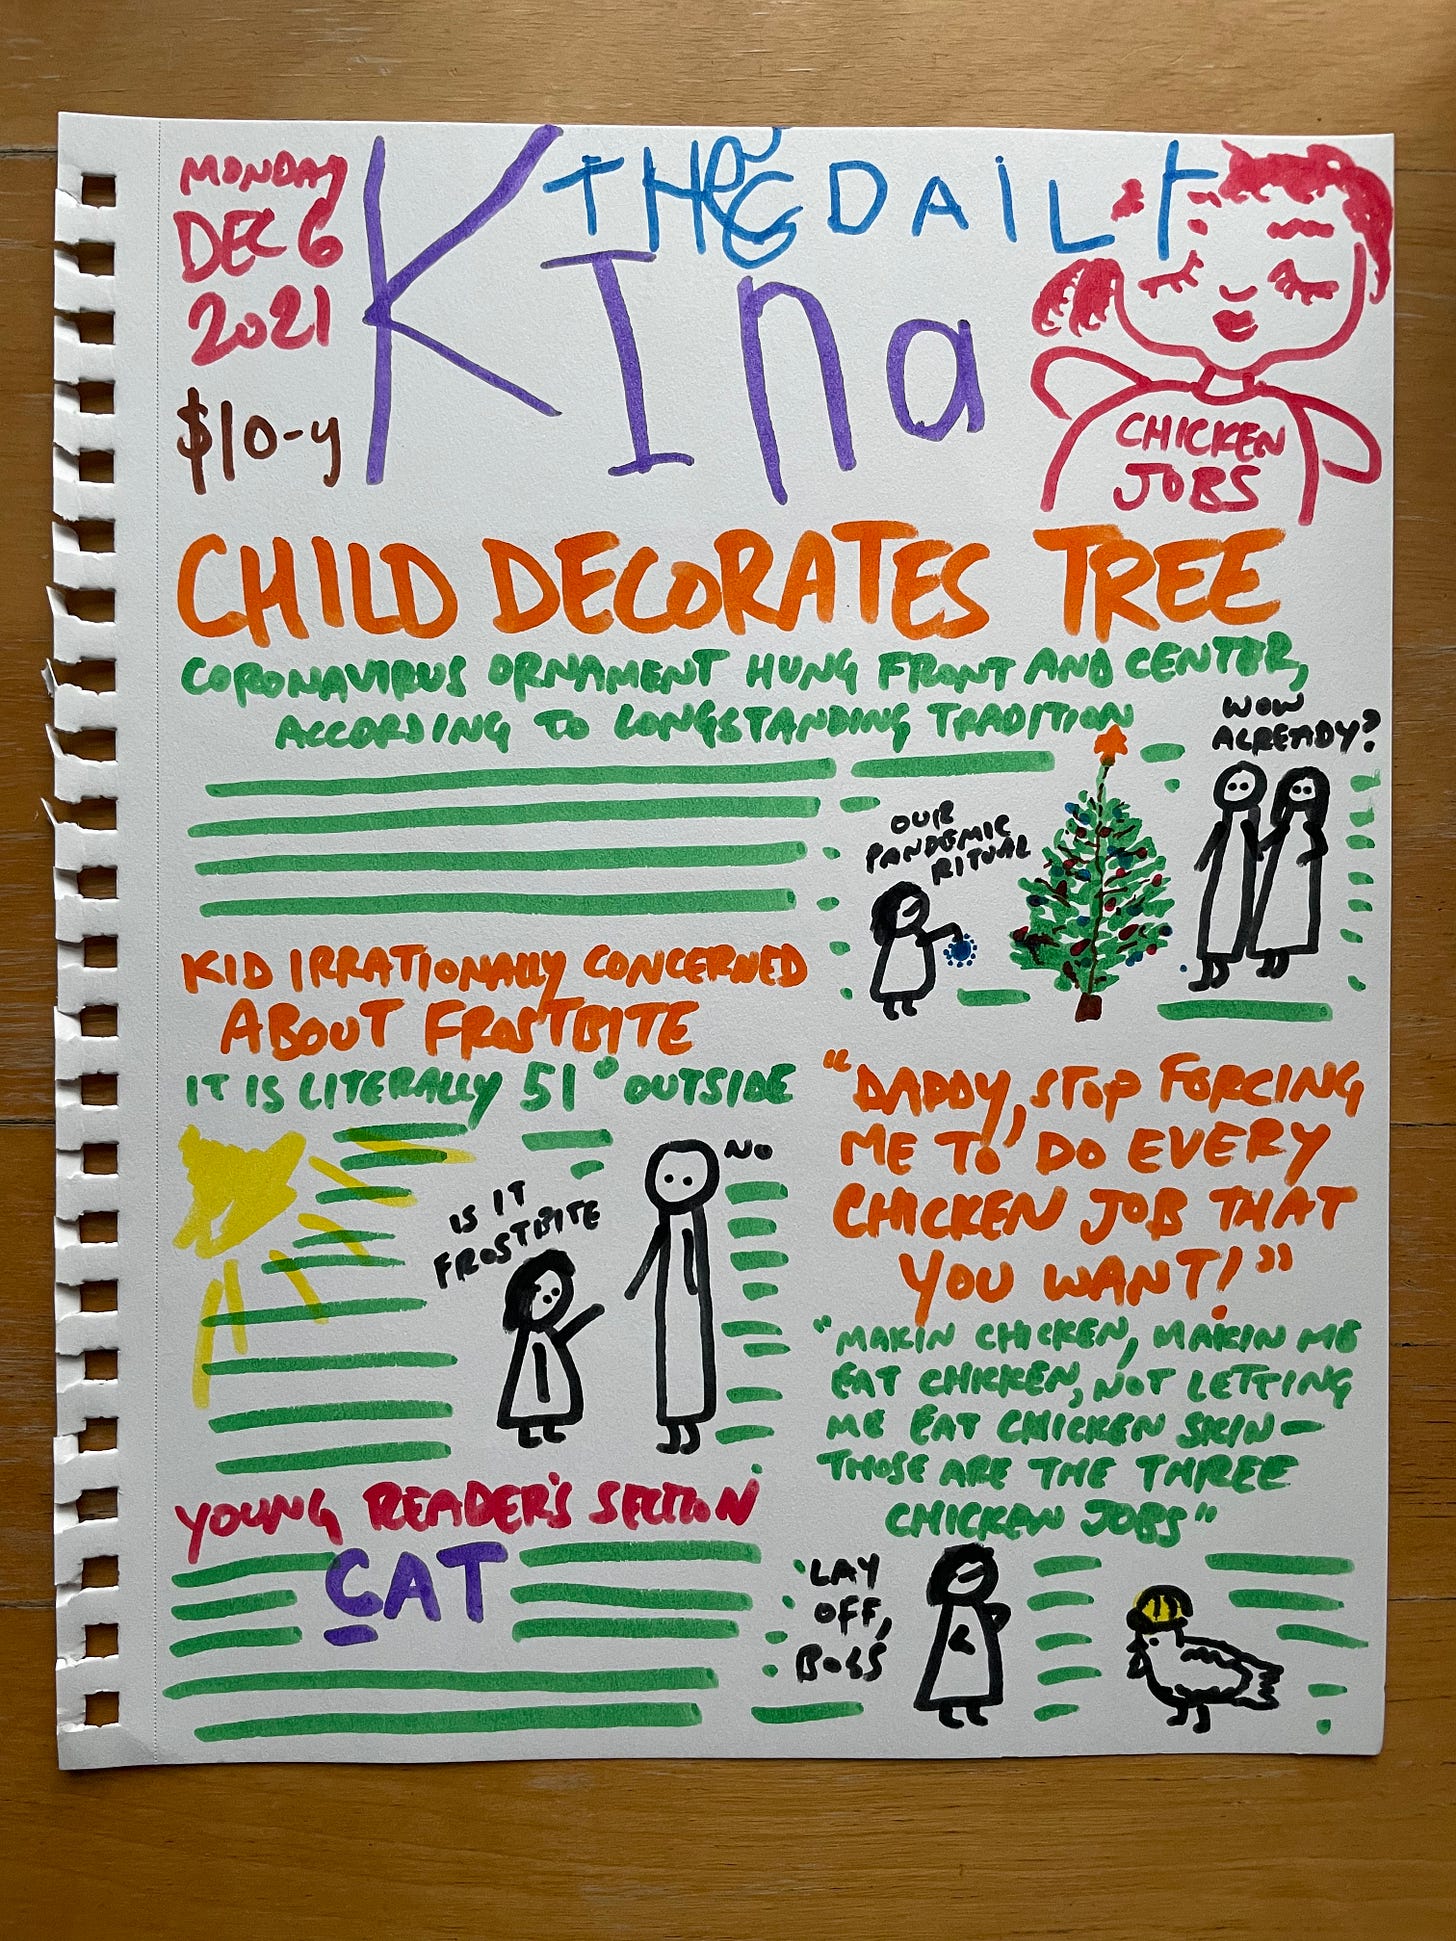 MONDAY
DEC 6
2021
$10-y
THE DAILY
KIna
CHICKEN
JOBS
CHILD DECORATES TREE
CORONAVIRUS ORNAMENT HUNG FRONT AND CENTER,
ACCORDING TO LONGSTANDING TRADITION
WOW
ALREADY?
OUR
PANDEMIC
RITUAL
KID IRRATIONALLY CONCERNED
ABOUT FROSTBITE
IT IS LITERALLY 51° OUTSIDE
NO
IS IT
FROSTBITE
"DADDY, STOP FORCING
ME TO DO EVERY
CHICKEN JOB THAT
YOU WANT!"
"MAKIN CHICKEN, MAKIN ME
EAT CHICKEN, NOT LETTING
ME EAT CHICKEN SKIN—
THOSE ARE THE THREE
CHICKEN JOBS"
LAY
OFF,
BOSS
YOUNG READER'S SECTION
CAT